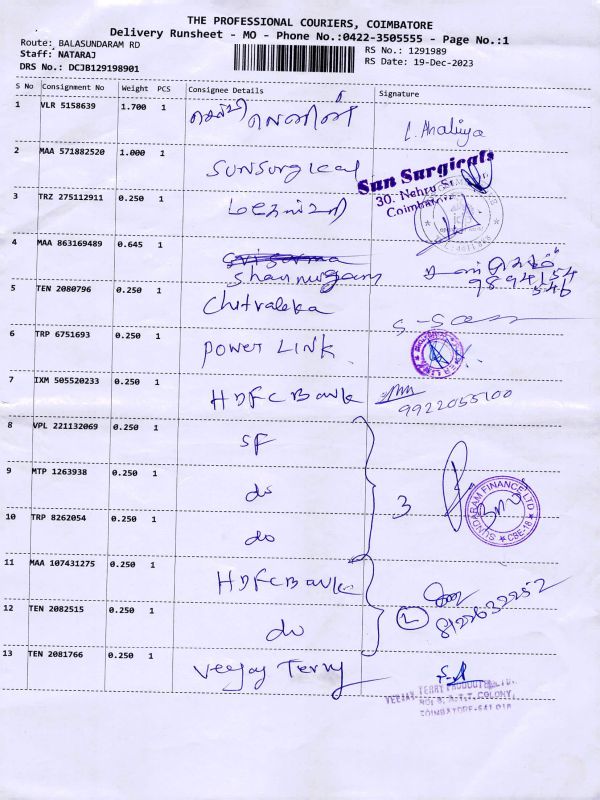 THE PROFESSIONAL COURIERS, COIMBATORE
Delivery Runsheet - MO - Phone No.:0422-3505555 - Page No.:1
Route: BALASUNDARAM RD
Staff: NATARAJ
DRS No.: DCJB129198901
RS No.: 1291989
RS Date: 19-Dec-2023
S No Consignment No Weight PCS Consignee Details Signature
1 VLR 5158639 1.700 1
2 MAA 571882520 1.000 1 SunSurgical
Sun Surgicals
30, Nehru St
Coimbatore
3 TRZ 275112911 0.250 1
4 MAA 863169489 0.645 1 Shanmugam
9894154
546
5 TEN 2080796 0.250 1 Chitraleka
6 TRP 6751693 0.250 1 POWER LINK
7 IXM 505520233 0.250 1 HDFC Bank 9922055100
8 VPL 221132069 0.250 1 SF
9 MTP 1263938 0.250 1 do 3
SUNDARAM FINANCE LTD
CBE-18
10 TRP 8262054 0.250 1 do
11 MAA 107431275 0.250 1 HDFC Bank
12 TEN 2082515 0.250 1 do 2 8122632252
13 TEN 2081766 0.250 1 Veejay Terry
VEEJAY TERRY PRODUCTS LTD.
COLONY,
COIMBATORE-641018